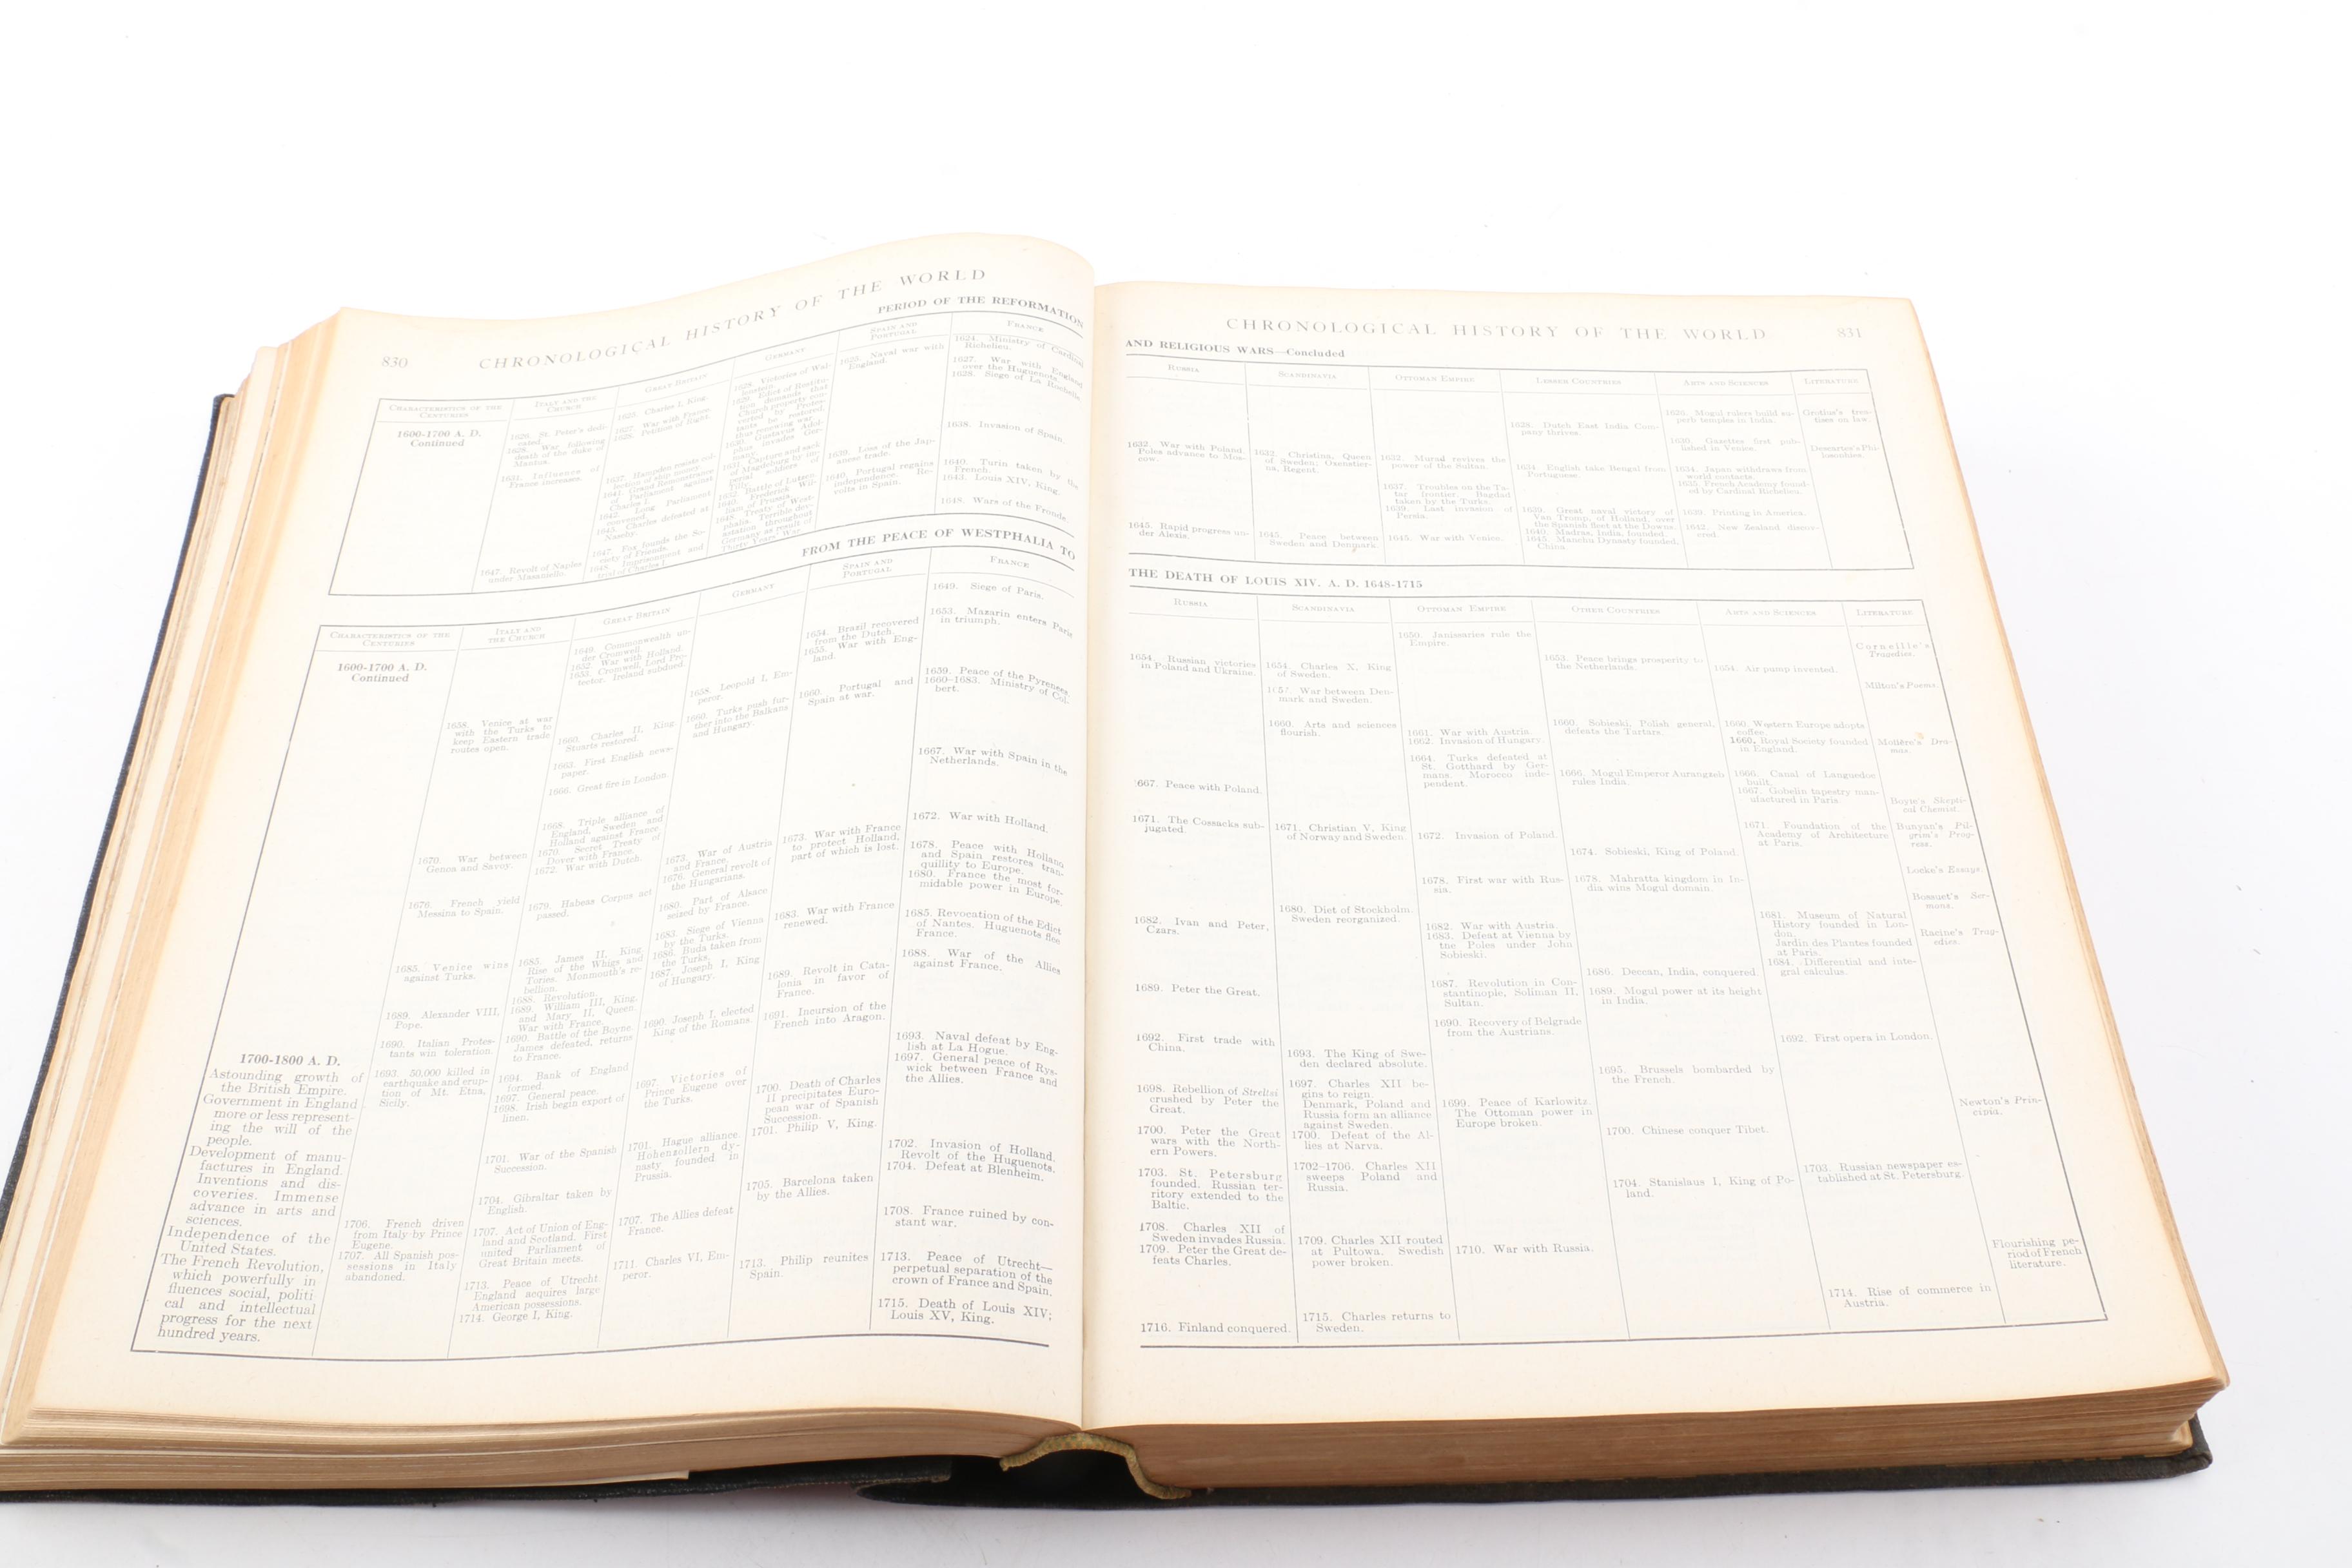 830
CHRONOLOGICAL HISTORY OF THE WORLD
PERIOD OF THE REFORMATION
CHARACTERISTICS OF THE
CENTURIES
1600-1700 A. D.
Continued
ITALY AND THE
CHURCH
1626. St. Peter's dedi-
cated.
1628. War following
death of the duke of
Mantua.
1631. Influence of
France increases.
1647. Revolt of Naples
under Masaniello.
GREAT BRITAIN
1625. Charles I, King.
1627. War with France.
1628. Petition of Right.
1637. Hampden resists col-
lection of ship money.
1641. Grand Remonstrance
of Parliament against
Charles I.
1642. Long Parliament
convened.
1645. Charles defeated at
Naseby.
1647. Fox founds the So-
ciety of Friends.
1648. Imprisonment and
trial of Charles I.
GERMANY
1628. Victories of Wal-
lenstein.
1629. Edict of Restitu-
tion demands that
Church property con-
verted by Protes-
tants be restored,
thus renewing war.
1630. Gustavus Adol-
phus invades Ger-
many.
1631. Capture and sack
of Magdeburg by im-
perial soldiers of
Tilly.
1632. Battle of Lutzen.
1640. Frederick Wil-
liam of Prussia.
1648. Treaty of West-
phalia. Terrible dev-
astation throughout
Germany as result of
Thirty Years' War.
SPAIN AND
PORTUGAL
1625. Naval war with
England.
1639. Loss of the Jap-
anese trade.
1640. Portugal regains
independence. Re-
volts in Spain.
FRANCE
1624. Ministry of Cardinal
Richelieu.
1627. War with England
over the Huguenots.
1628. Siege of La Rochelle.
1638. Invasion of Spain.
1640. Turin taken by the
French.
1643. Louis XIV, King.
1648. Wars of the Fronde.
FROM THE PEACE OF WESTPHALIA TO
CHARACTERISTICS OF THE
CENTURIES
1600-1700 A. D.
Continued
1700-1800 A. D.
Astounding growth of
the British Empire.
Government in England
more or less represent-
ing the will of the
people.
Development of manu-
factures in England.
Inventions and dis-
coveries. Immense
advance in arts and
sciences.
Independence of the
United States.
The French Revolution,
which powerfully in
fluences social, politi
cal and intellectual
progress for the next
hundred years.
ITALY AND
THE CHURCH
1658. Venice at war
with the Turks to
keep Eastern trade
routes open.
1670. War between
Genoa and Savoy.
1676. French yield
Messina to Spain.
1685. Venice wins
against Turks.
1689. Alexander VIII,
Pope.
1690. Italian Protes-
tants win toleration.
1693. 50,000 killed in
earthquake and erup-
tion of Mt. Etna,
Sicily.
1706. French driven
from Italy by Prince
Eugene.
1707. All Spanish pos-
sessions in Italy
abandoned.
GREAT BRITAIN
1649. Commonwealth un-
der Cromwell.
1652. War with Holland.
1653. Cromwell, Lord Pro-
tector. Ireland subdued.
1660. Charles II, King.
Stuarts restored.
1663. First English news-
paper.
1666. Great fire in London.
1668. Triple alliance of
England, Sweden and
Holland against France.
1670. Secret Treaty of
Dover with France.
1672. War with Dutch.
1679. Habeas Corpus act
passed.
1685. James II, King.
Rise of the Whigs and
Tories. Monmouth's re-
bellion.
1688. Revolution.
1689. William III, King,
and Mary II, Queen.
War with France.
1690. Battle of the Boyne.
James defeated, returns
to France.
1694. Bank of England
formed.
1697. General peace.
1698. Irish begin export of
linen.
1701. War of the Spanish
Succession.
1704. Gibraltar taken by
English.
1707. Act of Union of Eng-
land and Scotland. First
united Parliament of
Great Britain meets.
1713. Peace of Utrecht
England acquires large
American possessions.
1714. George I, King.
GERMANY
1658. Leopold I, Em-
peror.
1660. Turks push fur-
ther into the Balkans
and Hungary.
1673. War of Austria
and France.
1676. General revolt of
the Hungarians.
1680. Part of Alsace
seized by France.
1683. Siege of Vienna
by the Turks.
1686. Buda taken from
the Turks.
1687. Joseph I, King
of Hungary.
1690. Joseph I, elected
King of the Romans.
1697. Victories of
Prince Eugene over
the Turks.
1701. Hague alliance.
Hohenzollern dy-
nasty founded in
Prussia.
1707. The Allies defeat
France.
1711. Charles VI, Em-
peror.
SPAIN AND
PORTUGAL
1654. Brazil recovered
from the Dutch.
1655. War with Eng-
land.
1660. Portugal and
Spain at war.
1673. War with France
to protect Holland,
part of which is lost.
1683. War with France
renewed.
1689. Revolt in Cata-
lonia in favor of
France.
1691. Incursion of the
French into Aragon.
1700. Death of Charles
II precipitates Euro-
pean war of Spanish
Succession.
1701. Philip V, King.
1705. Barcelona taken
by the Allies.
1713. Philip reunites
Spain.
FRANCE
1649. Siege of Paris.
1653. Mazarin enters Paris
in triumph.
1659. Peace of the Pyrenees.
1660-1683. Ministry of Col-
bert.
1667. War with Spain in the
Netherlands.
1672. War with Holland.
1678. Peace with Holland
and Spain restores tran-
quillity to Europe.
1680. France the most for-
midable power in Europe.
1685. Revocation of the Edict
of Nantes. Huguenots flee
France.
1688. War of the Allies
against France.
1693. Naval defeat by Eng-
lish at La Hogue.
1697. General peace of Rys-
wick between France and
the Allies.
1702. Invasion of Holland.
Revolt of the Huguenots.
1704. Defeat at Blenheim.
1708. France ruined by con-
stant war.
1713. Peace of Utrecht—
perpetual separation of the
crown of France and Spain.
1715. Death of Louis XIV;
Louis XV, King.
CHRONOLOGICAL HISTORY OF THE WORLD
831
AND RELIGIOUS WARS—Concluded
RUSSIA
1632. War with Poland.
Poles advance to Mos-
cow.
1645. Rapid progress un-
der Alexis.
SCANDINAVIA
1632. Christina, Queen
of Sweden; Oxenstier-
na, Regent.
1645. Peace between
Sweden and Denmark.
OTTOMAN EMPIRE
1632. Murad revives the
power of the Sultan.
1637. Troubles on the Ta-
tar frontier. Bagdad
taken by the Turks.
1639. Last invasion of
Persia.
1645. War with Venice.
LESSER COUNTRIES
1628. Dutch East India Com-
pany thrives.
1634. English take Bengal from
Portuguese.
1639. Great naval victory of
Van Tromp, of Holland, over
the Spanish fleet at the Downs.
1640. Madras, India, founded.
1645. Manchu Dynasty founded,
China.
ARTS AND SCIENCES
1626. Mogul rulers build su-
perb temples in India.
1630. Gazettes first pub-
lished in Venice.
1634. Japan withdraws from
world contacts.
1635. French Academy found-
ed by Cardinal Richelieu.
1639. Printing in America.
1642. New Zealand discov-
ered.
LITERATURE
Grotius's trea-
tises on law.
Descartes's Phi-
losophies.
THE DEATH OF LOUIS XIV. A. D. 1648-1715
RUSSIA
1654. Russian victories
in Poland and Ukraine.
1667. Peace with Poland.
1671. The Cossacks sub-
jugated.
1682. Ivan and Peter,
Czars.
1689. Peter the Great.
1692. First trade with
China.
1698. Rebellion of Streltsi
crushed by Peter the
Great.
1700. Peter the Great
wars with the North-
ern Powers.
1703. St. Petersburg
founded. Russian ter-
ritory extended to the
Baltic.
1708. Charles XII of
Sweden invades Russia.
1709. Peter the Great de-
feats Charles.
1716. Finland conquered.
SCANDINAVIA
1654. Charles X, King
of Sweden.
War between Den-
mark and Sweden.
1660. Arts and sciences
flourish.
1671. Christian V, King
of Norway and Sweden.
1680. Diet of Stockholm.
Sweden reorganized.
1693. The King of Swe-
den declared absolute.
1697. Charles XII be-
gins to reign.
Denmark, Poland and
Russia form an alliance
against Sweden.
1700. Defeat of the Al-
lies at Narva.
1702-1706. Charles XII
sweeps Poland and
Russia.
1709. Charles XII routed
at Pultowa. Swedish
power broken.
1715. Charles returns to
Sweden.
OTTOMAN EMPIRE
1650. Janissaries rule the
Empire.
1661. War with Austria.
1662. Invasion of Hungary.
1664. Turks defeated at
St. Gotthard by Ger-
mans. Morocco inde-
pendent.
1672. Invasion of Poland.
1678. First war with Rus-
sia.
1682. War with Austria.
1683. Defeat at Vienna by
the Poles under John
Sobieski.
1687. Revolution in Con-
stantinople, Soliman II,
Sultan.
1690. Recovery of Belgrade
from the Austrians.
1699. Peace of Karlowitz.
The Ottoman power in
Europe broken.
1710. War with Russia.
OTHER COUNTRIES
1653. Peace brings prosperity to
the Netherlands.
1660. Sobieski, Polish general,
defeats the Tartars.
1666. Mogul Emperor Aurangzeb
rules India.
1674. Sobieski, King of Poland.
1678. Mahratta kingdom in In-
dia wins Mogul domain.
1686. Deccan, India, conquered.
1689. Mogul power at its height
in India.
1695. Brussels bombarded by
the French.
1700. Chinese conquer Tibet.
1704. Stanislaus I, King of Po-
land.
ARTS AND SCIENCES
1654. Air pump invented.
1660. Western Europe adopts
coffee.
1660. Royal Society founded
in England.
1666. Canal of Languedoc
built.
1667. Gobelin tapestry man-
ufactured in Paris.
1671. Foundation of the
Academy of Architecture
at Paris.
1681. Museum of Natural
History founded in Lon-
don.
Jardin des Plantes founded
at Paris.
1684. Differential and inte-
gral calculus.
1692. First opera in London.
1703. Russian newspaper es-
tablished at St. Petersburg.
1714. Rise of commerce in
Austria.
LITERATURE
Corneille's
Tragedies.
Milton's Poems.
Molière's Dra-
mas.
Boyle's Skepti-
cal Chemist.
Bunyan's Pil-
grim's Prog-
ress.
Locke's Essays.
Bossuet's Ser-
mons.
Racine's Trag-
edies.
Newton's Prin-
cipia.
Flourishing pe-
riod of French
literature.